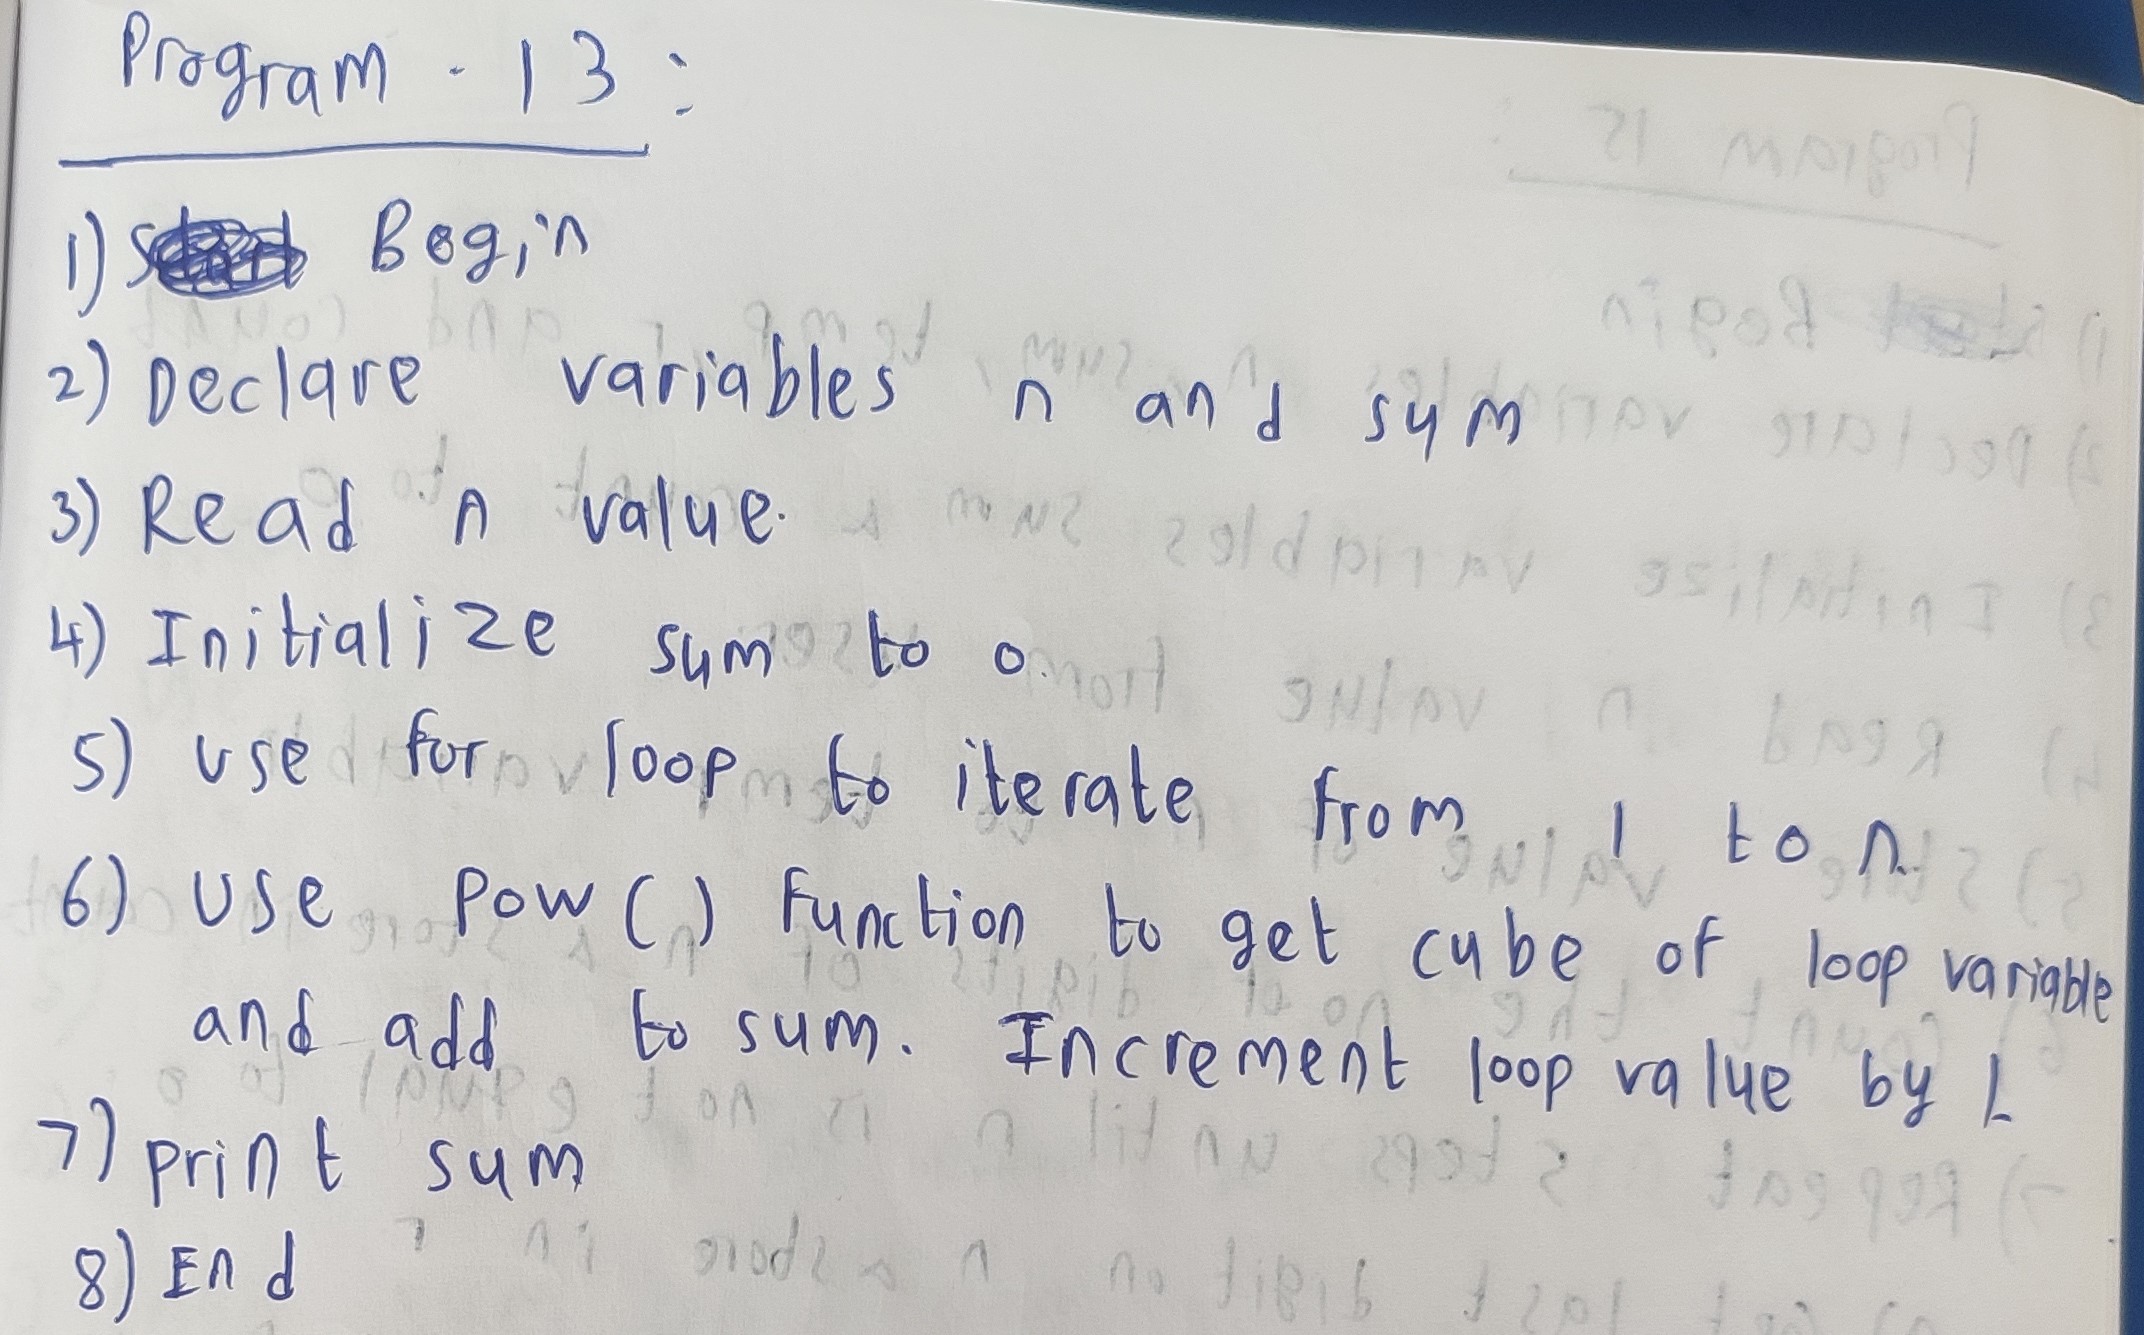 Program - 13 :
1) Begin
2) Declare variables n and sum
3) Read n value.
4) Initialize sum to 0.
5) use for loop to iterate from 1 to n.
6) Use pow ( ) function to get cube of loop variable
and add to sum. Increment loop value by 1
7) print sum
8) End